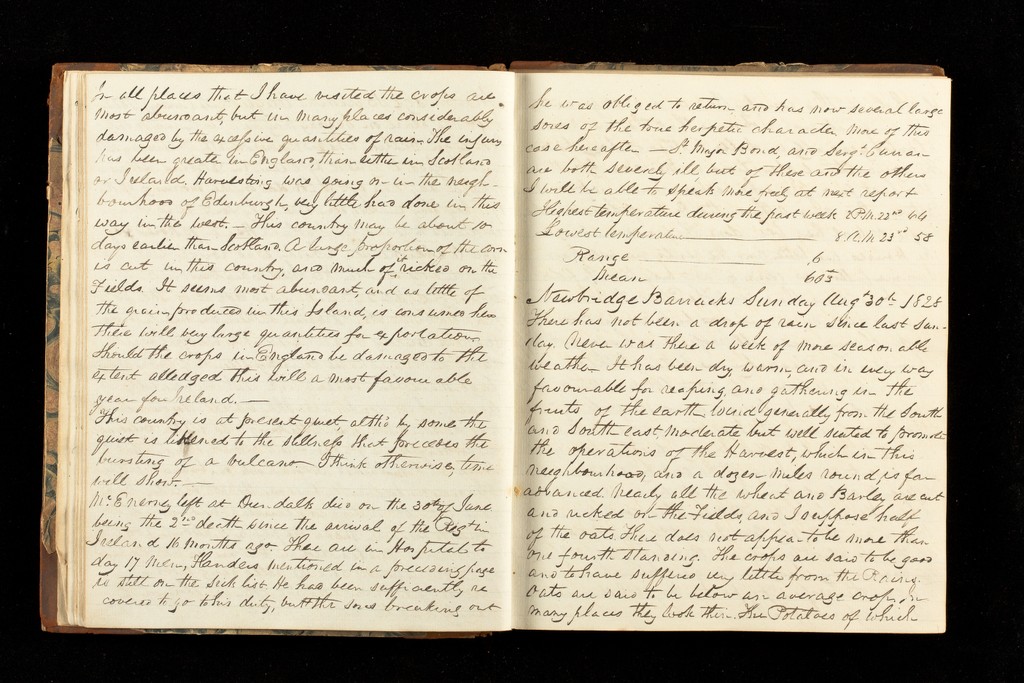 In all places that I have visited the crops are
most abundant, but in many places considerably
damaged by the excessive quantities of rain. The injury
has been greater in England, than either in Scotland
or Ireland. Harvesting was going on in the neigh-
bourhood of Edenburgh, very little had done in this
way in the west. - This country may be about 10
days earlier than Scotland. A large proportion of the corn
is cut in this country, and much of it ricked on the
Fields. It seems most abundant, and as little of
the grain produced in this Island, is consumed here
there will very large quantities for exportation
Should the crops in England be damaged to the
extent alledged this will a most favourable
year for reland. -
This country is at present quiet, altho by some the
quiet is likened to the stillness that precedes the
bursting of a vulcano. I think otherwise, time
will show. -
Mc Enerny left at Dundalk died on the 30th of June
being the 2nd death since the arrival of the Regt in
Ireland 16 months ago. There are in Hospital to
day 17 men, Flanders mentioned in a preceeding page
is still on the sick list He has been sufficiently re
covered to go to his duty, but the sores breaking out
he was obliged to return and has now several large
sores of the true herpetic character more of this
case hereafter - St. Major Bond, and Sergt. Curran
are both severely ill but of these and the others
I will be able to speak more freely at next report
Highest temperature during the past week 2 P.M. 22nd 64
Lowest temperature 8. A.M 23rd 58
Range 6
Mean 60.5
Newbridge Barracks Sunday Augt 30th 1828
There has not been a drop of rain since last Sun-
day. Never was there a week of more seasonable
weather. It has been dry warm, and in every way
favourable for reaping, and gathering in the
fruits of the earth, wind generally from the South
and South east, moderate but well suited to promote
the operations of the Harvest, which in this
neighbourhood, and a dozen miles round, is far
advanced. Nearly all the wheat and Barley are cut
and ricked on the Fields, and I suppose half
of the oats. There does not appear to be more than
one fourth standing. The crops are said to be good
and to have suffered very little from the Rains.
Oats are said to be below an average crop, in
many places they look thin. The Potatoes of which